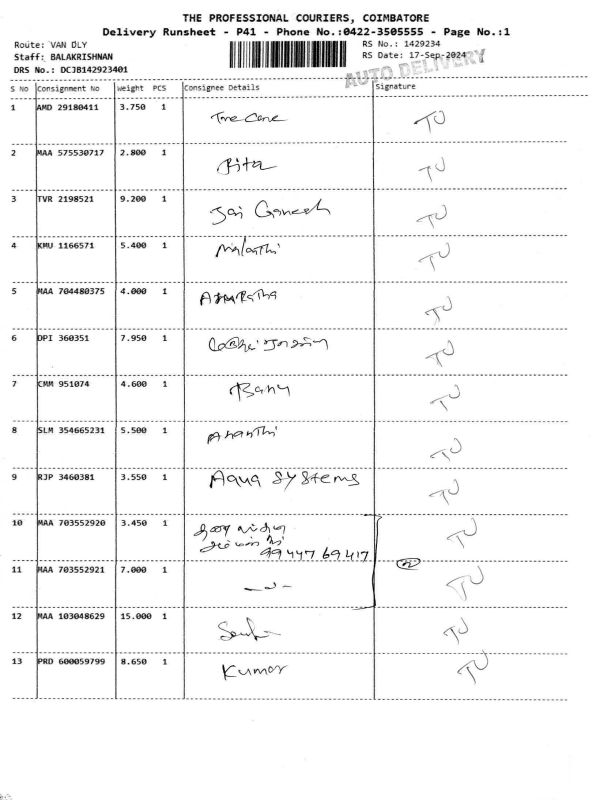 THE PROFESSIONAL COURIERS, COIMBATORE
Delivery Runsheet - P41 - Phone No.:0422-3505555 - Page No.:1
Route: VAN DLY
RS No.: 1429234
Staff: BALAKRISHNAN
RS Date: 17-Sep-2024
DRS No.: DCJB142923401
AUTO DELIVERY
S No Consignment No Weight PCS Consignee Details Signature
1 AMD 29180411 3.750 1 TU
2 MAA 575530717 2.800 1 Rita TU
3 TVR 2198521 9.200 1 Jai Ganesh TU
4 KMU 1166571 5.400 1 Malathi TU
5 MAA 704480375 4.000 1 TU
6 DPI 360351 7.950 1 TU
7 CMM 951074 4.600 1 Banu TU
8 SLM 354665231 5.500 1 Ananthi TU
9 RJP 3460381 3.550 1 Aqua Systems TU
10 MAA 703552920 3.450 1 TU
99447 69417
11 MAA 703552921 7.000 1 -"- TU
12 MAA 103048629 15.000 1 TU
13 PRD 600059799 8.650 1 Kumar TU